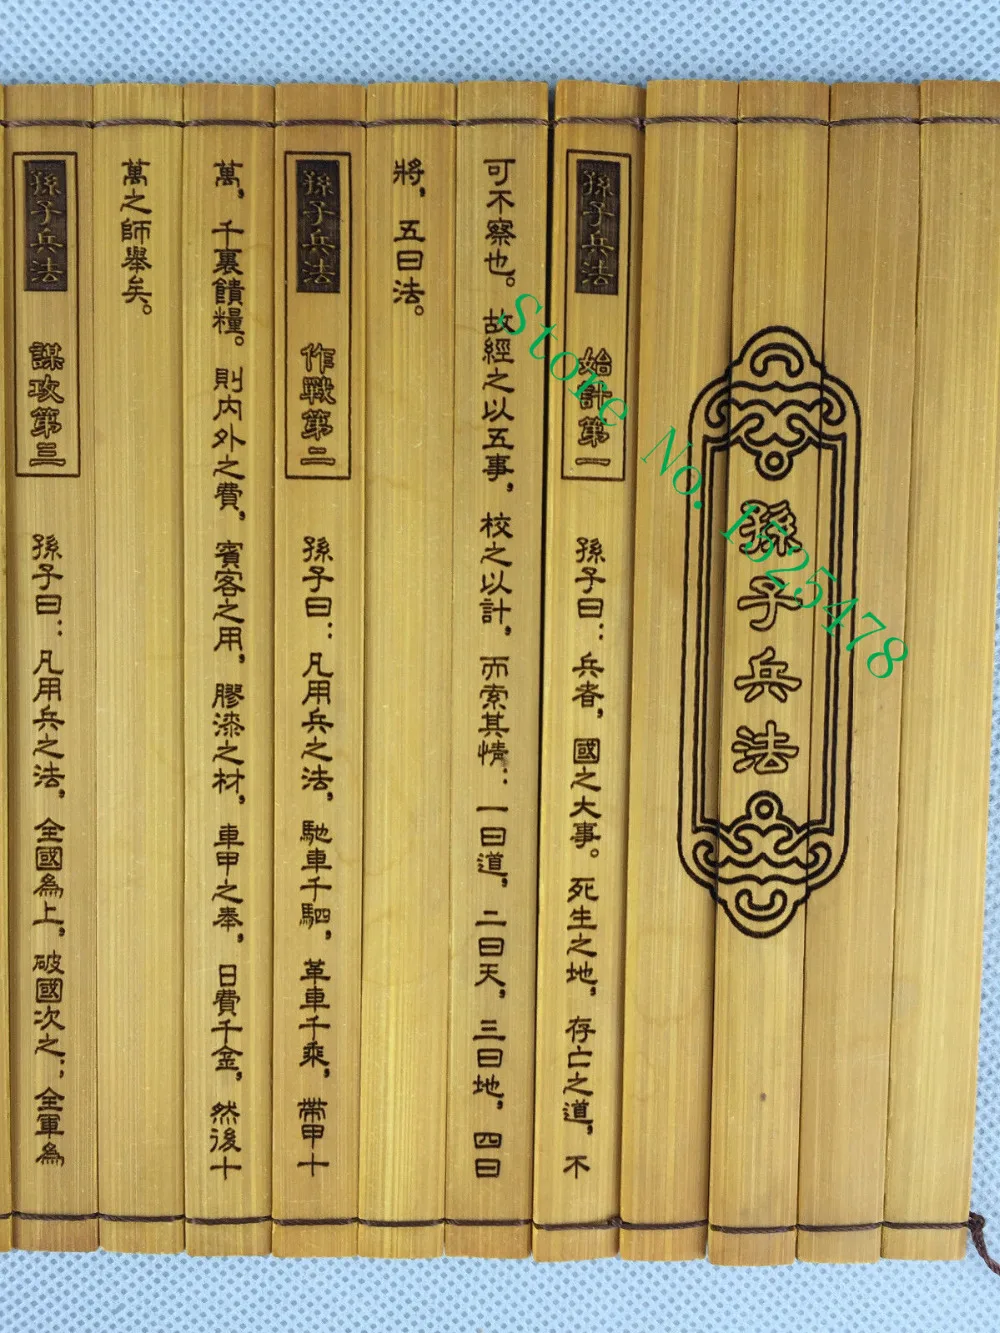 孫子兵法
孫子兵法 始計第一 孫子曰：兵者，國之大事。死生之地，存亡之道，不
可不察也。故經之以五事，校之以計，而索其情：一曰道，二曰天，三曰地，四曰
將，五曰法。
孫子兵法 作戰第二 孫子曰：凡用兵之法，馳車千駟，革車千乘，帶甲十
萬，千裏饋糧。則內外之費，賓客之用，膠漆之材，車甲之奉，日費千金，然後十
萬之師舉矣。
孫子兵法 謀攻第三 孫子曰：凡用兵之法，全國為上，破國次之；全軍為
Store No. 1525478